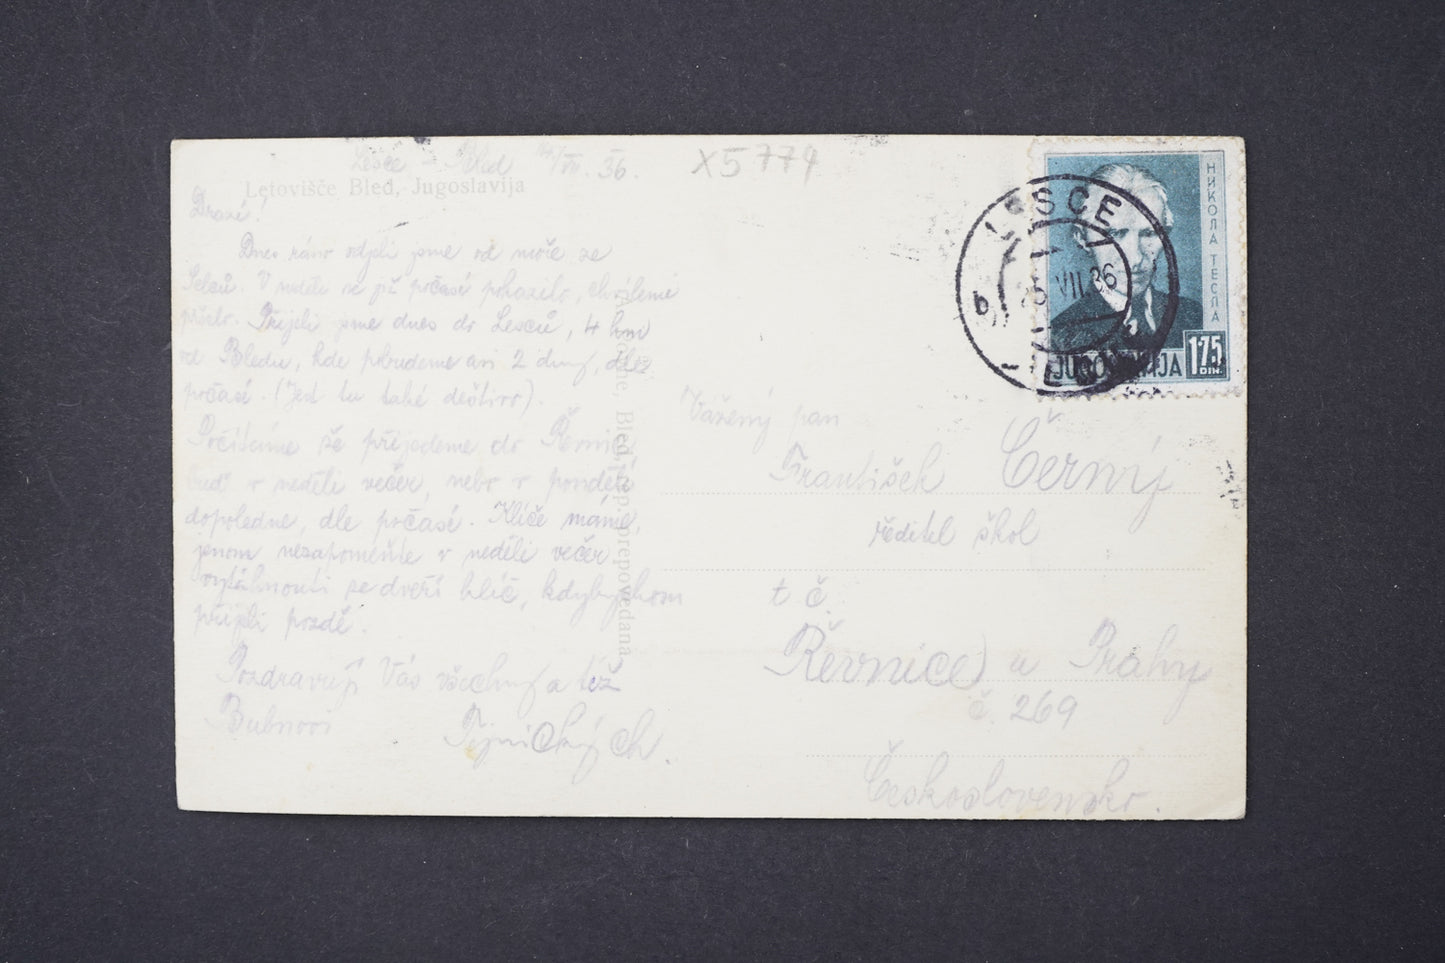 Lesce - Bled 14/VII. 36.
X5779
Letovišče Bled, Jugoslavija
Drazí!
Dnes ráno odjeli jsme od moře ze
Selců. V neděli se již počasí pokazilo, chválíme
Přijeli jsme dnes do Lesců, 4 km
od Bledu, kde pobudeme asi 2 dny, dle
počasí. (Jest tu také deštivo).
Počítáme že přijedeme do Řevnic
buď v neděli večer, nebo v pondělí
dopoledne, dle počasí. Klíče máme,
jenom nezapomeňte v neděli večer
vytáhnouti ze dveří klíč, kdybychom
přijeli pozdě.
Pozdravují Vás všechny a též
Bubnovi
Bled, prepovedana
НИКОЛА ТЕСЛА
JUGOSLAVIJA
1·75
DIN.
LESCE
b
VII 36
Vážený pan
František Černý
ředitel škol
t č.
Řevnice u Prahy
č. 269
Československo.